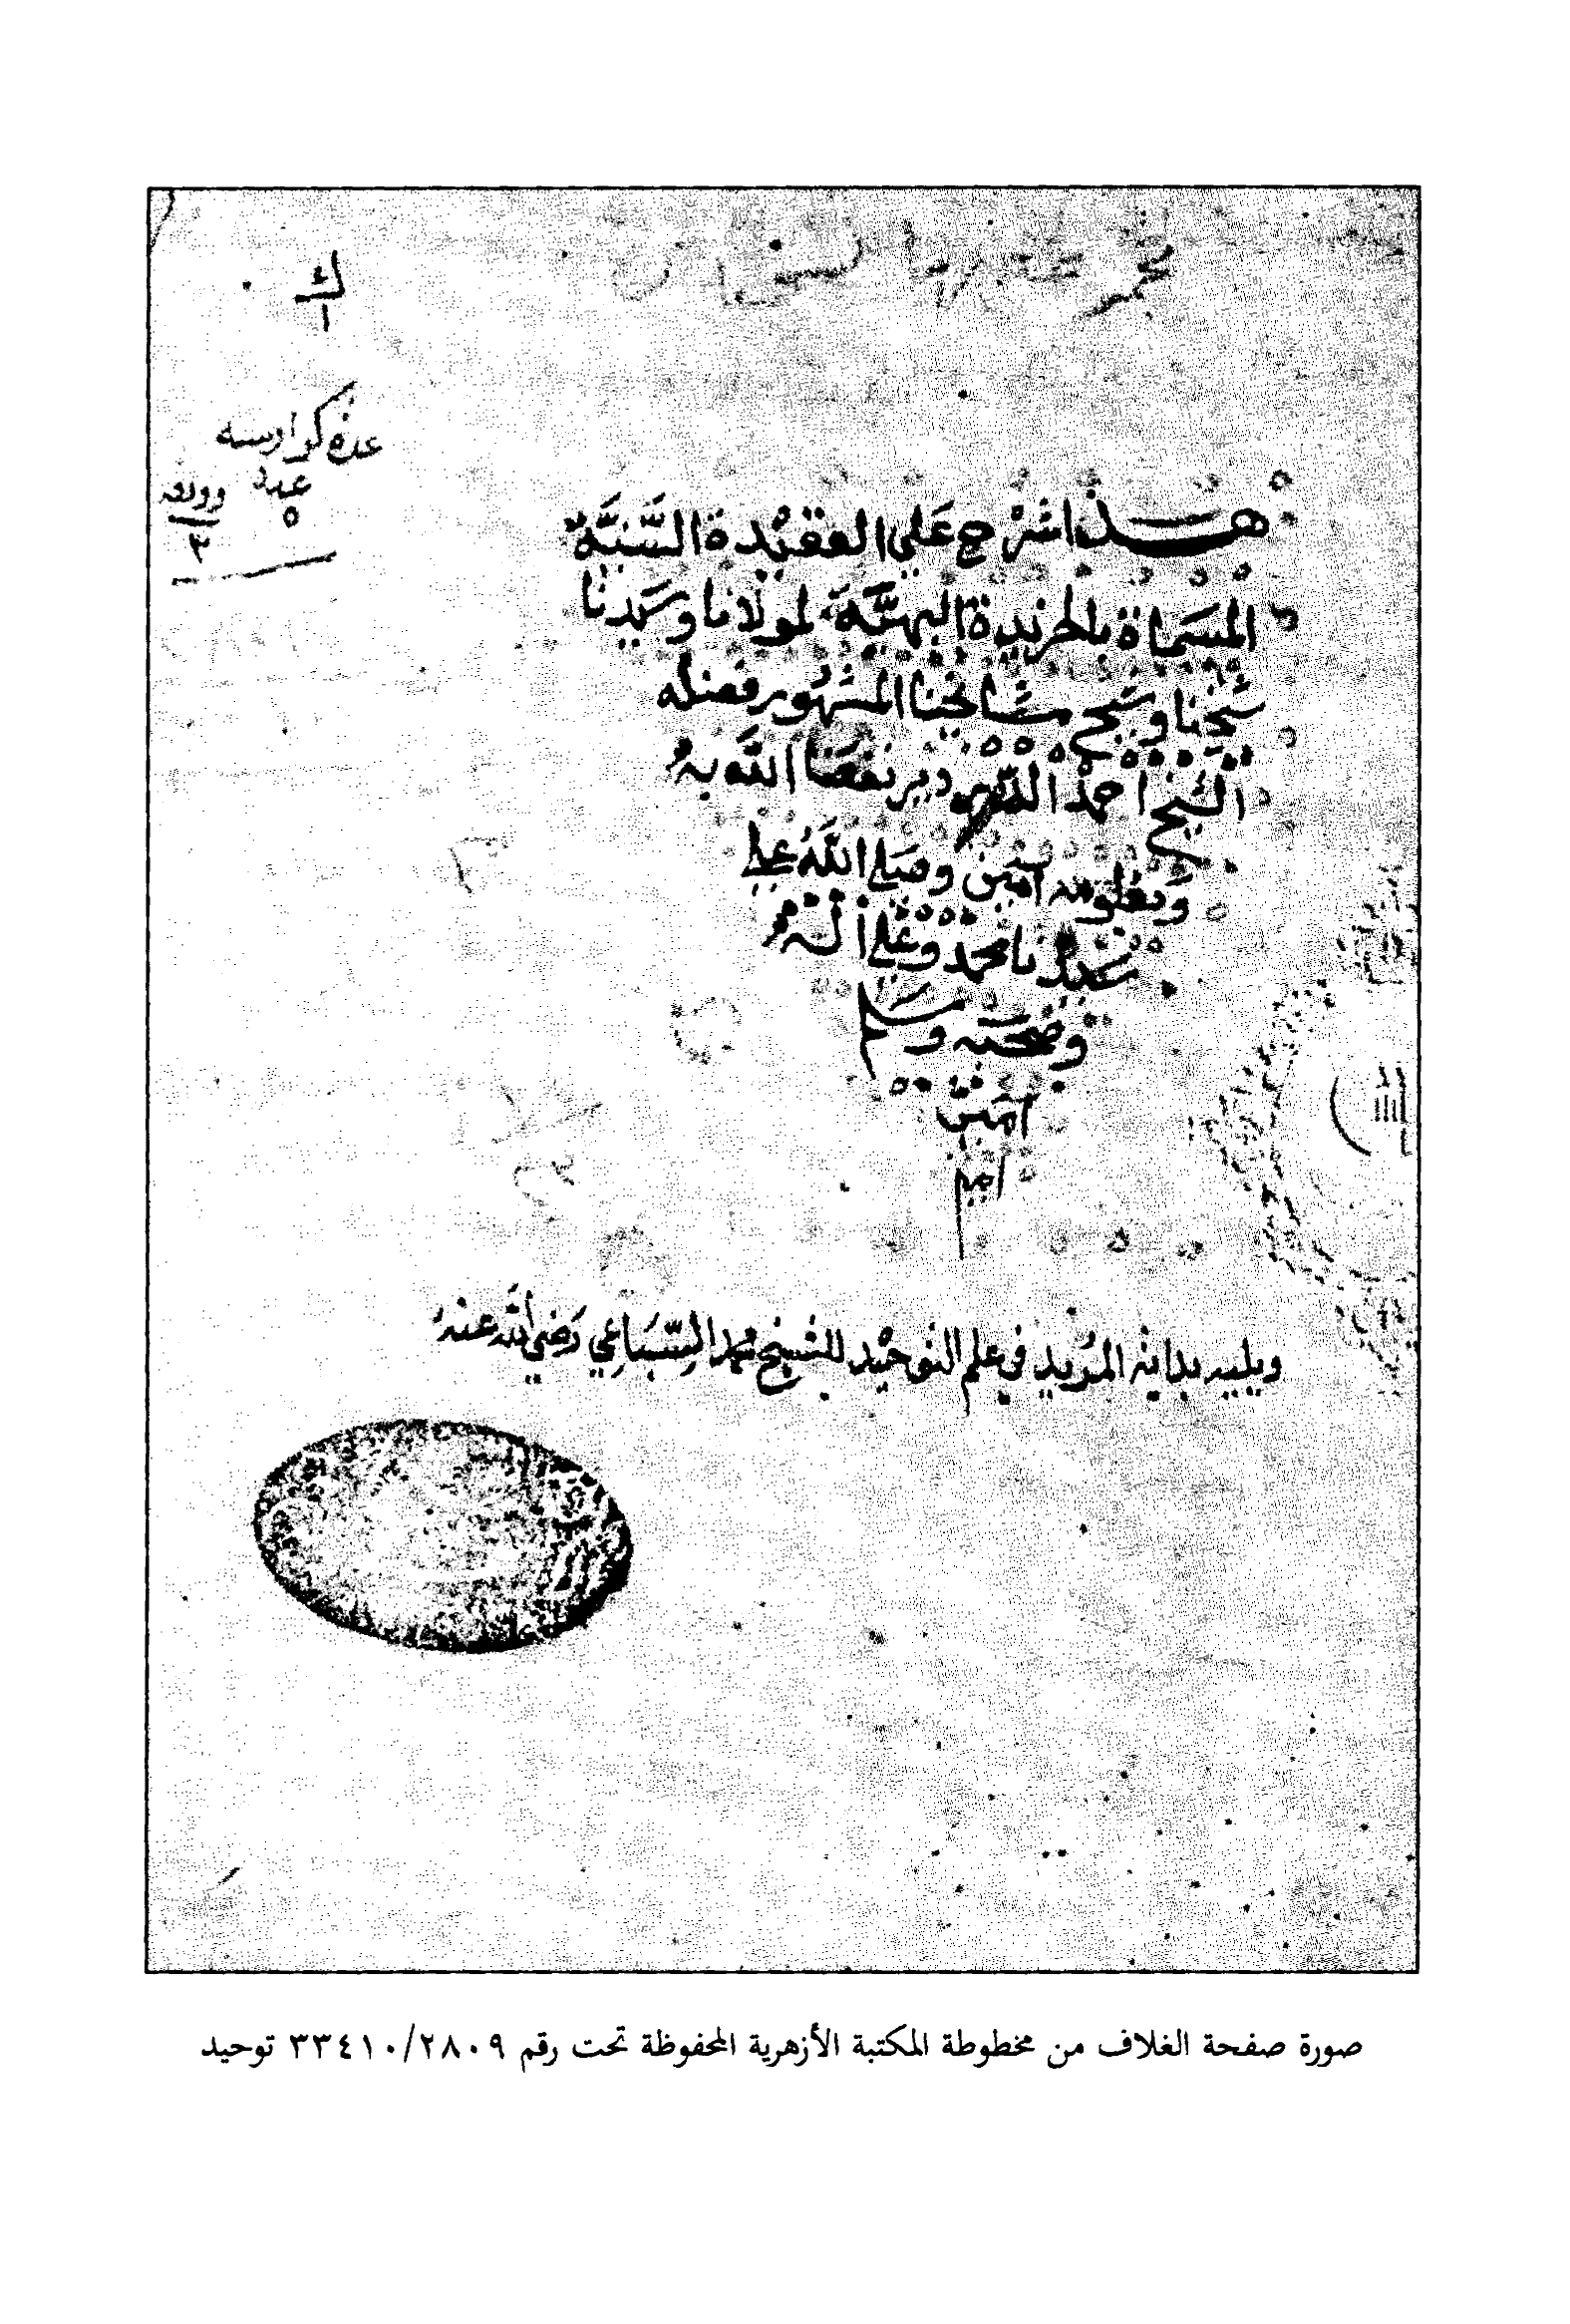 ك
١
عدة كراريسه
عدد
٥
وورقه
٣
هذا شرح على العقيدة السنية
المسماة بالخريدة البهية لمولانا وسيدنا
شيخنا وشيخ مشايخنا المشهور فضله
الشيخ احمد الدردير نفعنا الله به
وبعلومه امين وصلى الله على
سيدنا محمد وعلى اله
وصحبه وسلم
امين
امين
ويليه بداية المريد في علم التوحيد للشيخ محمد السباعي رضي الله عنه
صورة صفحة الغلاف من مخطوطة المكتبة الأزهرية المحفوظة تحت رقم ٣٣٤١٠/٢٨٠٩ توحيد